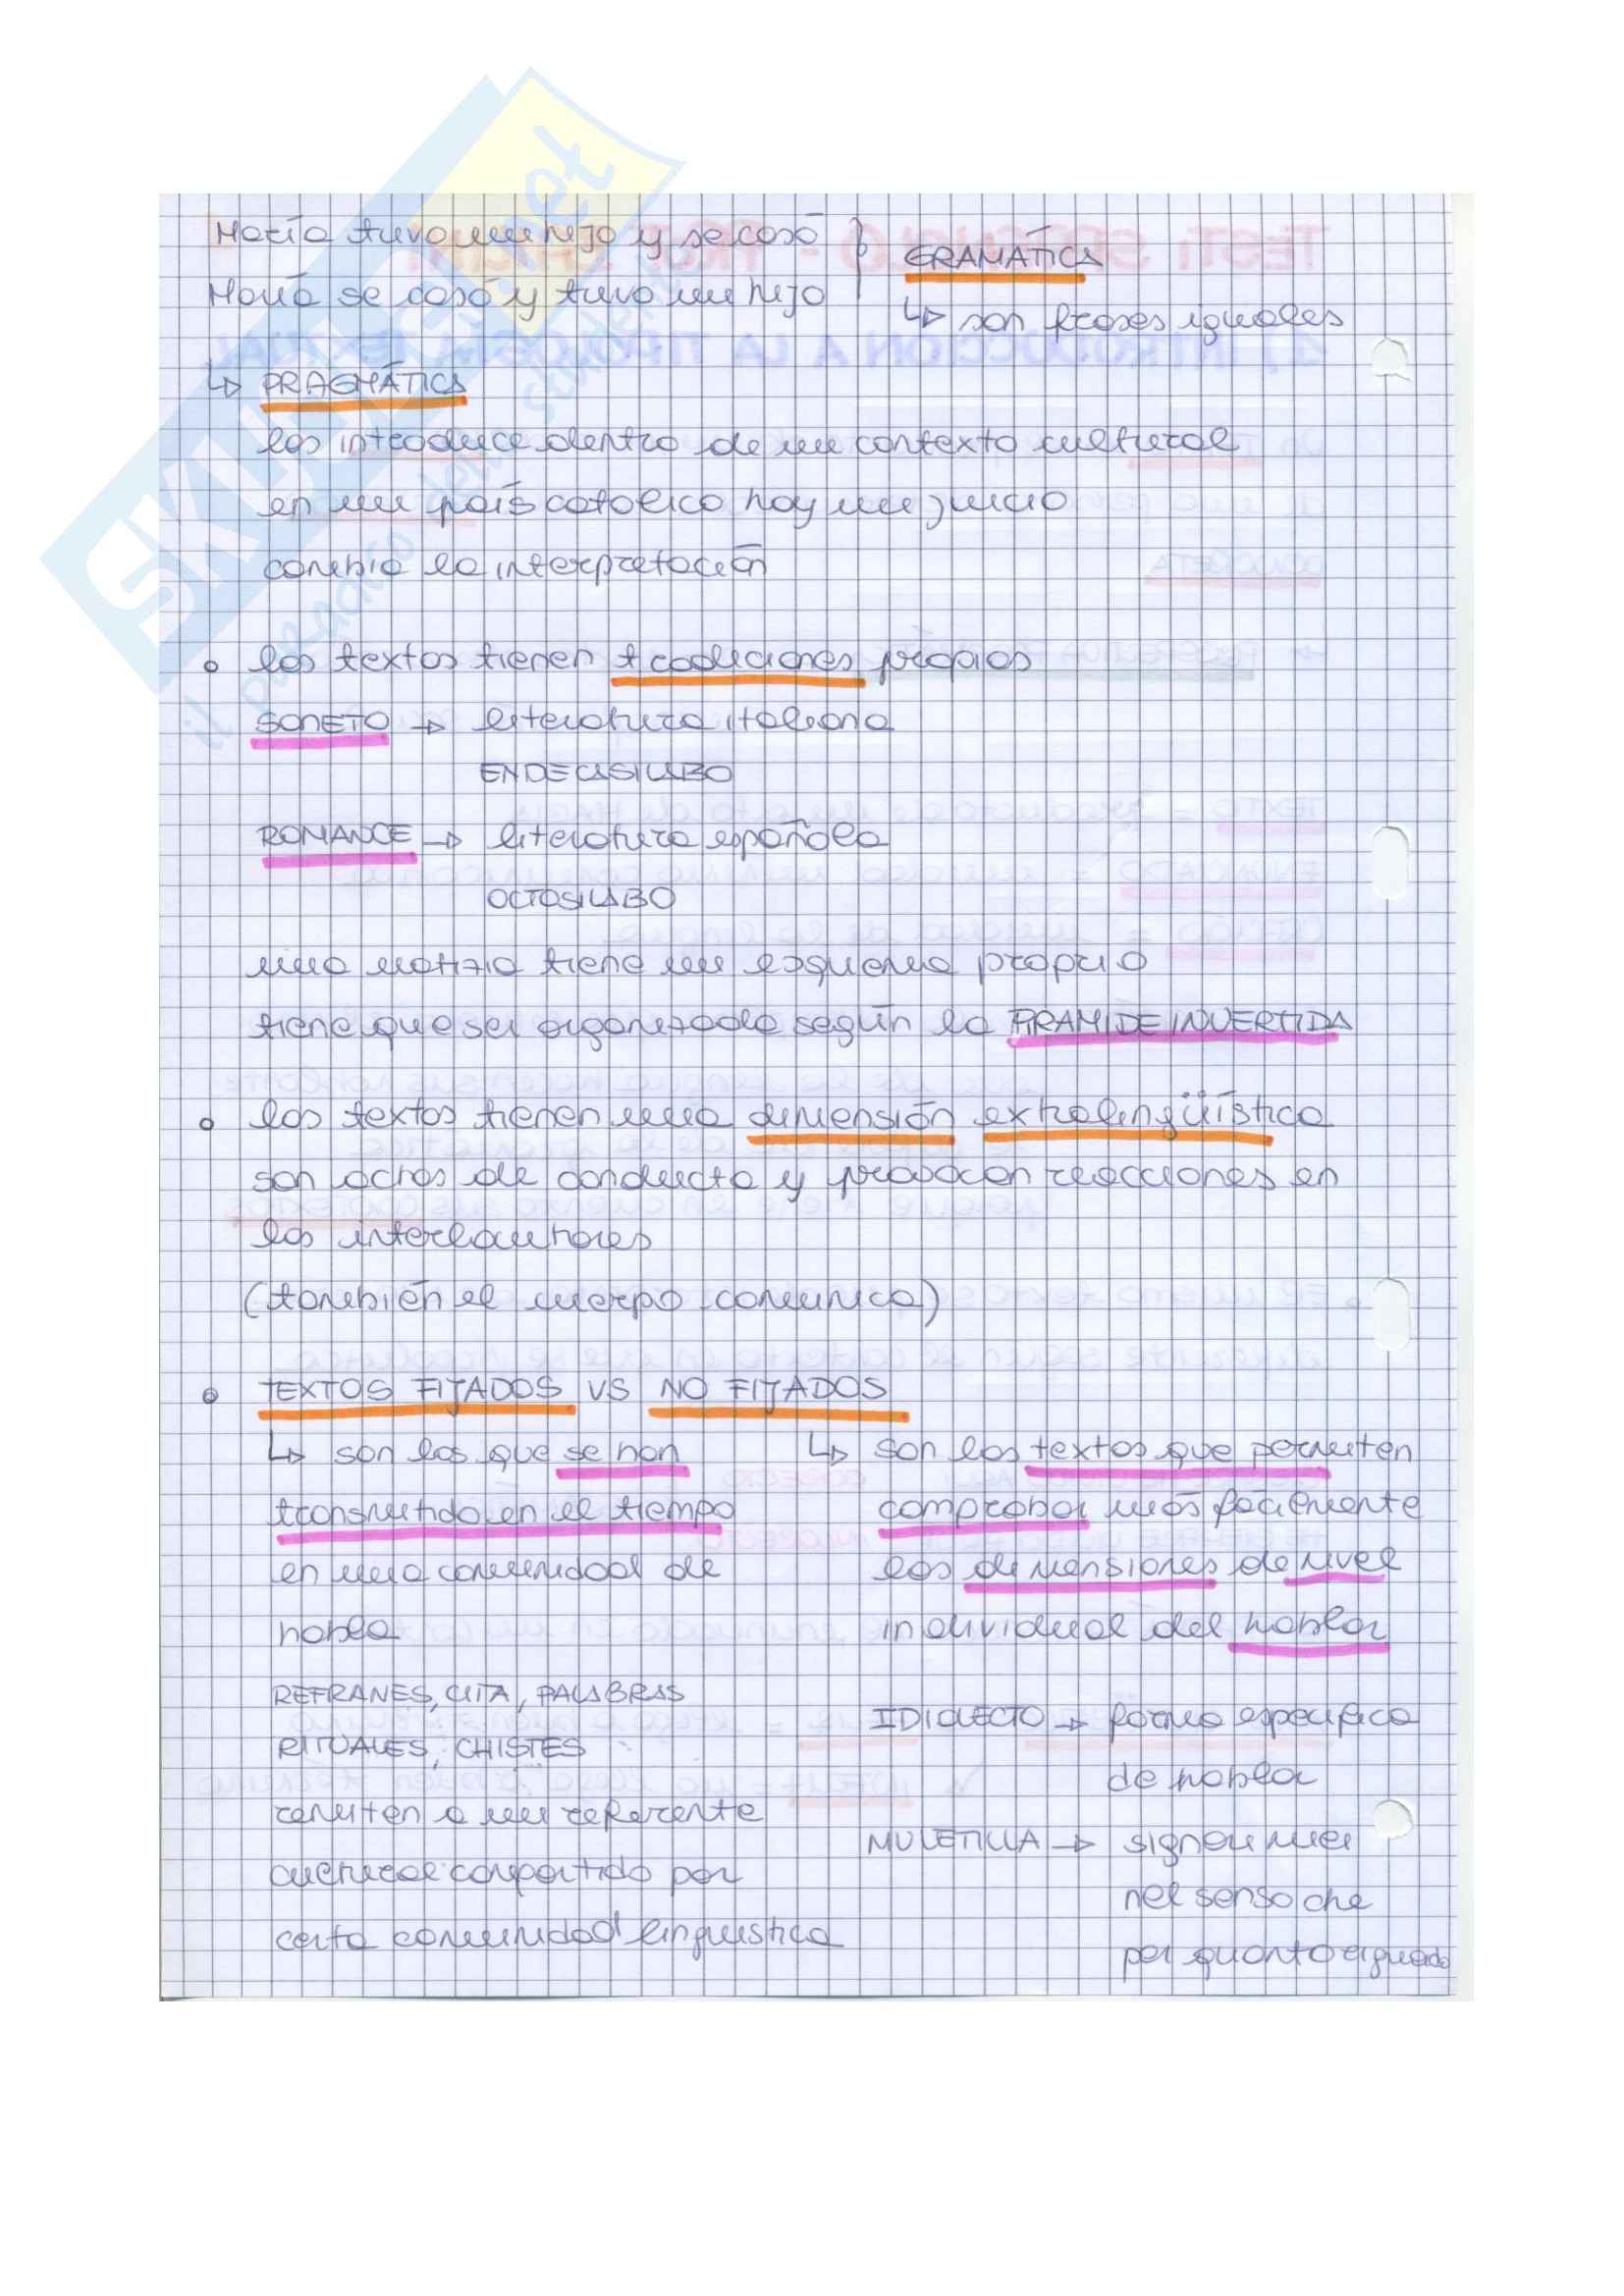 María tuvo un hijo y se casó
María se casó y tuvo un hijo
GRAMÁTICA
↳ son frases iguales
↳ PRAGMÁTICA
las introduce dentro de un contexto cultural
en un país catolico hay un juicio
cambia la interpretación
los textos tienen tradiciones propias
SONETO → literatura italiana
ENDECASILABO
ROMANCE → literatura española
OCTOSILABO
una notizia tiene un esquema proprio
tiene que ser organizada según la PIRAMIDE INVERTIDA
los textos tienen una dimensión extralingüística
son actos de conducta y provocan reacciones en
los interlocutores
(también el cuerpo comunica)
TEXTOS FIJADOS VS NO FIJADOS
↳ son los que se han
transmitido en el tiempo
en una comunidad de
habla
REFRANES, CITA, PALABRAS
RITUALES, CHISTES
remiten a un referente
cultural compartido por
certa comunidad linguistica
↳ son los textos que permiten
comprobar más facilmente
las dimensiones de nivel
individual del hablar
IDIOLECTO → forma especifica
de hablar
MULETILLA → signou mei
nel senso che
per quanto riguarda
SKUOLA.net
il paradiso dello studente